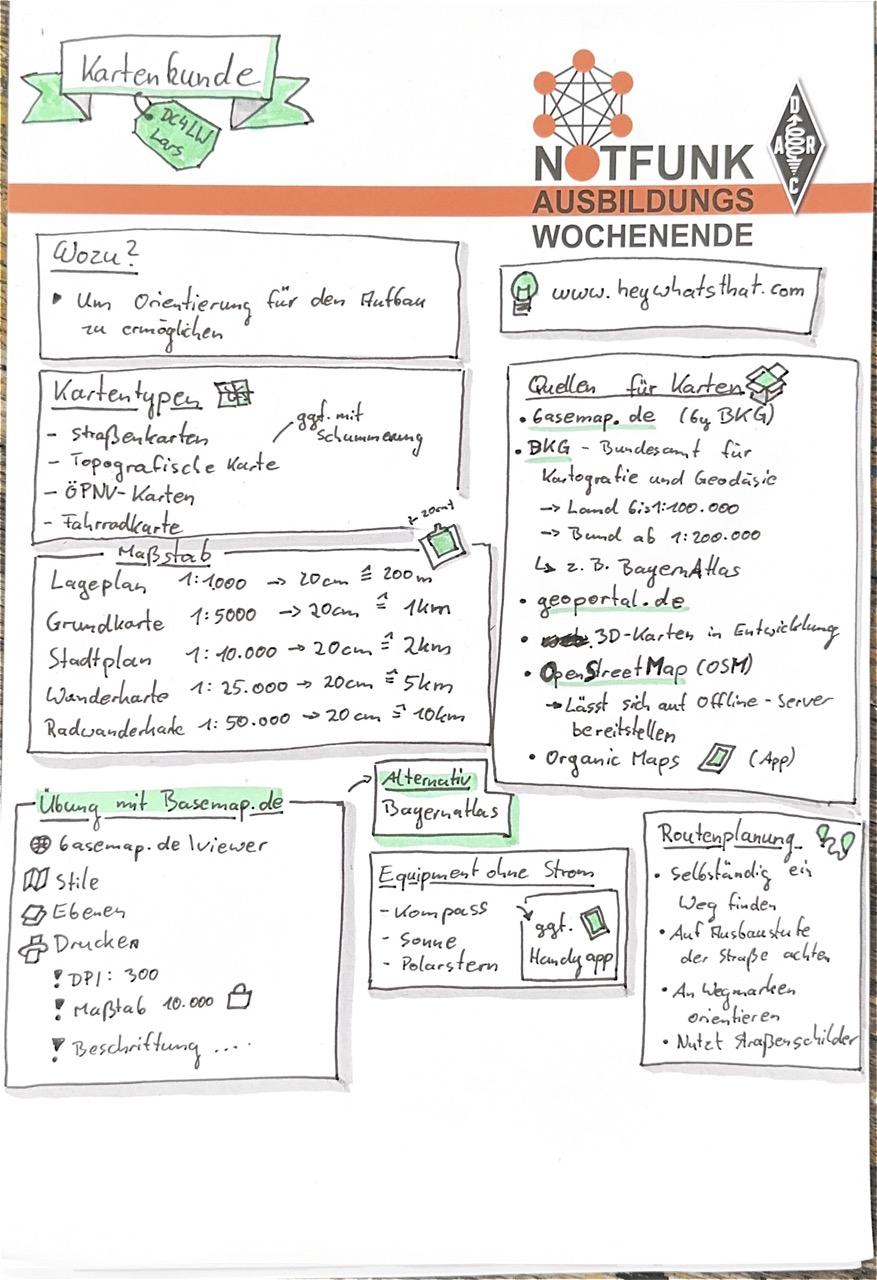 Kartenkunde
DC4LW
Lars
NOTFUNK
AUSBILDUNGS
WOCHENENDE
D
A R
C
Wozu?
Um Orientierung für den Aufbau
zu ermöglichen
www.heywhatsthat.com
Kartentypen
- Straßenkarten
- Topografische Karte
- ÖPNV-Karten
- Fahrradkarte
ggf. mit
Schummerung
Maßstab
20cm
Lageplan 1:1000 → 20cm ≙ 200m
Grundkarte 1:5000 → 20cm ≙ 1km
Stadtplan 1:10.000 → 20cm ≙ 2km
Wanderkarte 1:25.000 → 20cm ≙ 5km
Radwanderkarte 1:50.000 → 20cm ≙ 10km
Quellen für Karten
• basemap.de (by BKG)
• BKG - Bundesamt für
Kartografie und Geodäsie
→ Land bis 1:100.000
→ Bund ab 1:200.000
↳ z.B. BayernAtlas
• geoportal.de
• 3D-Karten in Entwicklung
• OpenStreetMap (OSM)
→ Lässt sich auf Offline-Server
bereitstellen
• Organic Maps (App)
Übung mit Basemap.de
basemap.de\viewer
Stile
Ebenen
Drucken
! DPI: 300
! Maßtab 10.000
! Beschriftung ....
Alternativ
Bayernatlas
Equipment ohne Strom
- Kompass
- Sonne
- Polarstern
ggf.
Handyapp
Routenplanung
• Selbständig ein
Weg finden
• Auf Ausbaustufe
der Straße achten
• An Wegmarken
orientieren
• Nutzt Straßenschilder